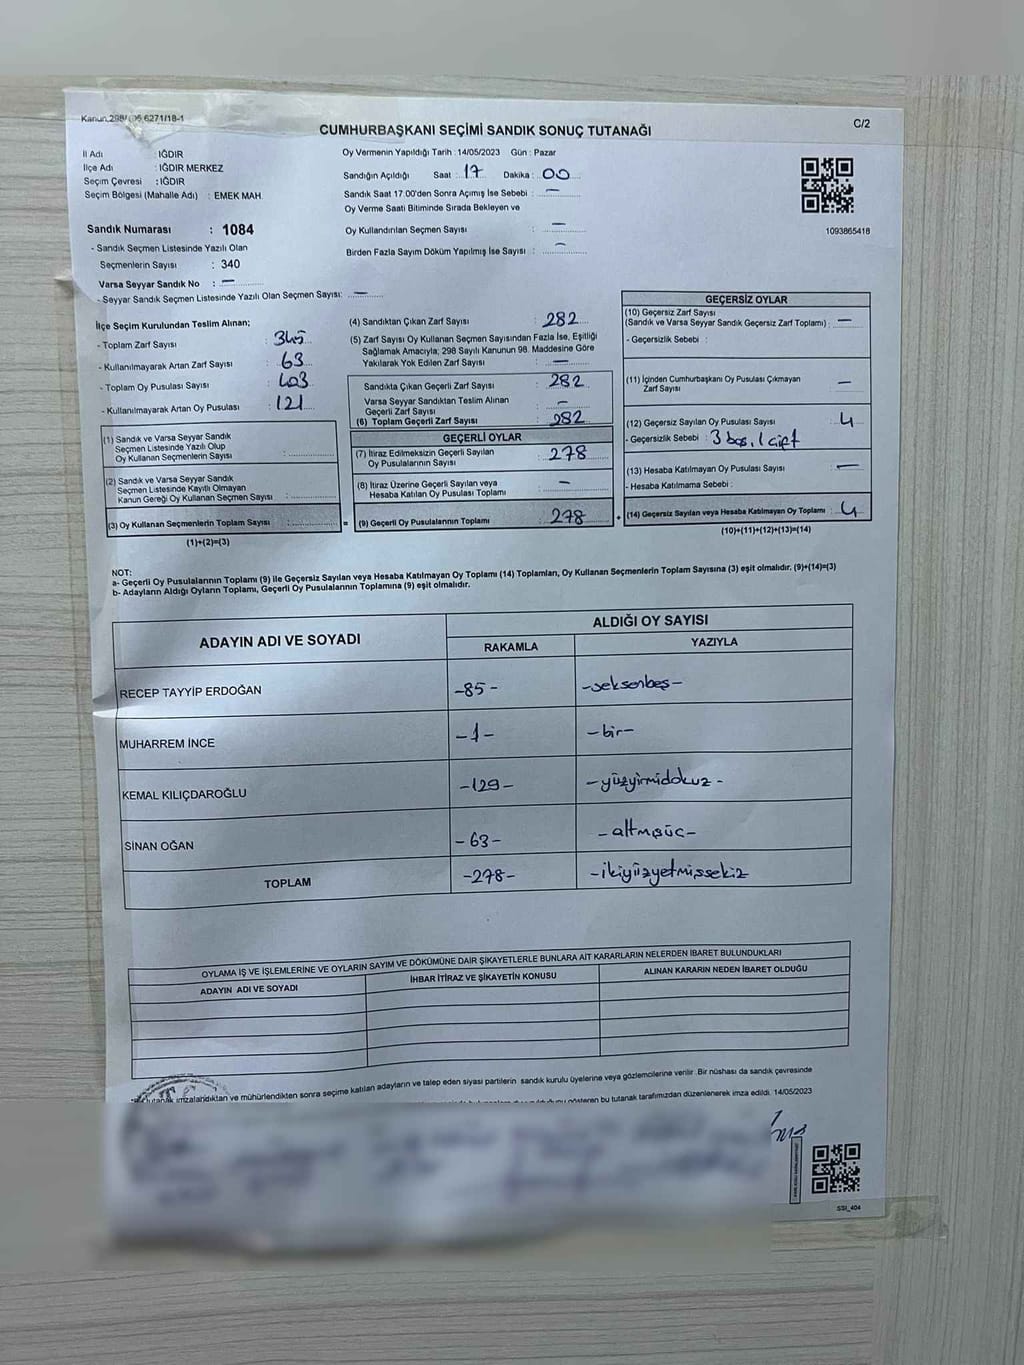 Kanun 298/ 6271/18-1
C/2
CUMHURBAŞKANI SEÇİMİ SANDIK SONUÇ TUTANAĞI
İl Adı : IĞDIR
İlçe Adı : IĞDIR MERKEZ
Seçim Çevresi : IĞDIR
Seçim Bölgesi (Mahalle Adı) : EMEK MAH.
Oy Vermenin Yapıldığı Tarih : 14/05/2023 Gün : Pazar
Sandığın Açıldığı Saat : 17 Dakika : 00
Sandık Saat 17.00'den Sonra Açımış İse Sebebi : —
Oy Verme Saati Bitiminde Sırada Bekleyen ve
Oy Kullandırılan Seçmen Sayısı : —
Birden Fazla Sayım Döküm Yapılmış İse Sayısı : —
1093865418
Sandık Numarası : 1084
- Sandık Seçmen Listesinde Yazılı Olan
Seçmenlerin Sayısı : 340
Varsa Seyyar Sandık No : —
- Seyyar Sandık Seçmen Listesinde Yazılı Olan Seçmen Sayısı: —
İlçe Seçim Kurulundan Teslim Alınan;
- Toplam Zarf Sayısı : 345
- Kullanılmayarak Artan Zarf Sayısı : 63
- Toplam Oy Pusulası Sayısı : 403
- Kullanılmayarak Artan Oy Pusulası : 121
(1) Sandık ve Varsa Seyyar Sandık
Seçmen Listesinde Yazılı Olup
Oy Kullanan Seçmenlerin Sayısı :
(2) Sandık ve Varsa Seyyar Sandık
Seçmen Listesinde Kayıtlı Olmayan
Kanun Gereği Oy Kullanan Seçmen Sayısı :
(3) Oy Kullanan Seçmenlerin Toplam Sayısı :
(1)+(2)=(3)
(4) Sandıktan Çıkan Zarf Sayısı : 282
(5) Zarf Sayısı Oy Kullanan Seçmen Sayısından Fazla İse, Eşitliği
Sağlamak Amacıyla; 298 Sayılı Kanunun 98. Maddesine Göre
Yakılarak Yok Edilen Zarf Sayısı : —
Sandıkta Çıkan Geçerli Zarf Sayısı : 282
Varsa Seyyar Sandıktan Teslim Alınan
Geçerli Zarf Sayısı : —
(6) Toplam Geçerli Zarf Sayısı : 282
GEÇERLİ OYLAR
(7) İtiraz Edilmeksizin Geçerli Sayılan
Oy Pusulalarının Sayısı : 278
(8) İtiraz Üzerine Geçerli Sayılan veya
Hesaba Katılan Oy Pusulası Toplamı : —
= (9) Geçerli Oy Pusulalarının Toplamı : 278
GEÇERSİZ OYLAR
(10) Geçersiz Zarf Sayısı
(Sandık ve Varsa Seyyar Sandık Geçersiz Zarf Toplamı) : —
- Geçersizlik Sebebi :
(11) İçinden Cumhurbaşkanı Oy Pusulası Çıkmayan
Zarf Sayısı : —
(12) Geçersiz Sayılan Oy Pusulası Sayısı : 4
- Geçersizlik Sebebi : 3 boş, 1 çift
(13) Hesaba Katılmayan Oy Pusulası Sayısı : —
- Hesaba Katılmama Sebebi :
+ (14) Geçersiz Sayılan veya Hesaba Katılmayan Oy Toplamı : 4
(10)+(11)+(12)+(13)=(14)
NOT:
a- Geçerli Oy Pusulalarının Toplamı (9) ile Geçersiz Sayılan veya Hesaba Katılmayan Oy Toplamı (14) Toplamları, Oy Kullanan Seçmenlerin Toplam Sayısına (3) eşit olmalıdır. (9)+(14)=(3)
b- Adayların Aldığı Oyların Toplamı, Geçerli Oy Pusulalarının Toplamına (9) eşit olmalıdır.
ADAYIN ADI VE SOYADI
ALDIĞI OY SAYISI
RAKAMLA YAZIYLA
RECEP TAYYİP ERDOĞAN -85- -seksenbeş-
MUHARREM İNCE -1- -bir-
KEMAL KILIÇDAROĞLU -129- -yüzyirmidokuz-
SİNAN OĞAN -63- -altmışüç-
TOPLAM -278- -ikiyüzyetmişsekiz
OYLAMA İŞ VE İŞLEMLERİNE VE OYLARIN SAYIM VE DÖKÜMÜNE DAİR ŞİKAYETLERLE BUNLARA AİT KARARLARIN NELERDEN İBARET BULUNDUKLARI
ADAYIN ADI VE SOYADI İHBAR İTİRAZ VE ŞİKAYETİN KONUSU ALINAN KARARIN NEDEN İBARET OLDUĞU
tutanak imzalandıktan ve mühürlendikten sonra seçime katılan adayların ve talep eden siyasi partilerin sandık kurulu üyelerine veya gözlemcilerine verilir. Bir nüshası da sandık çevresinde
gösteren bu tutanak tarafımızdan düzenlenerek imza edildi. 14/05/2023
SSI_404